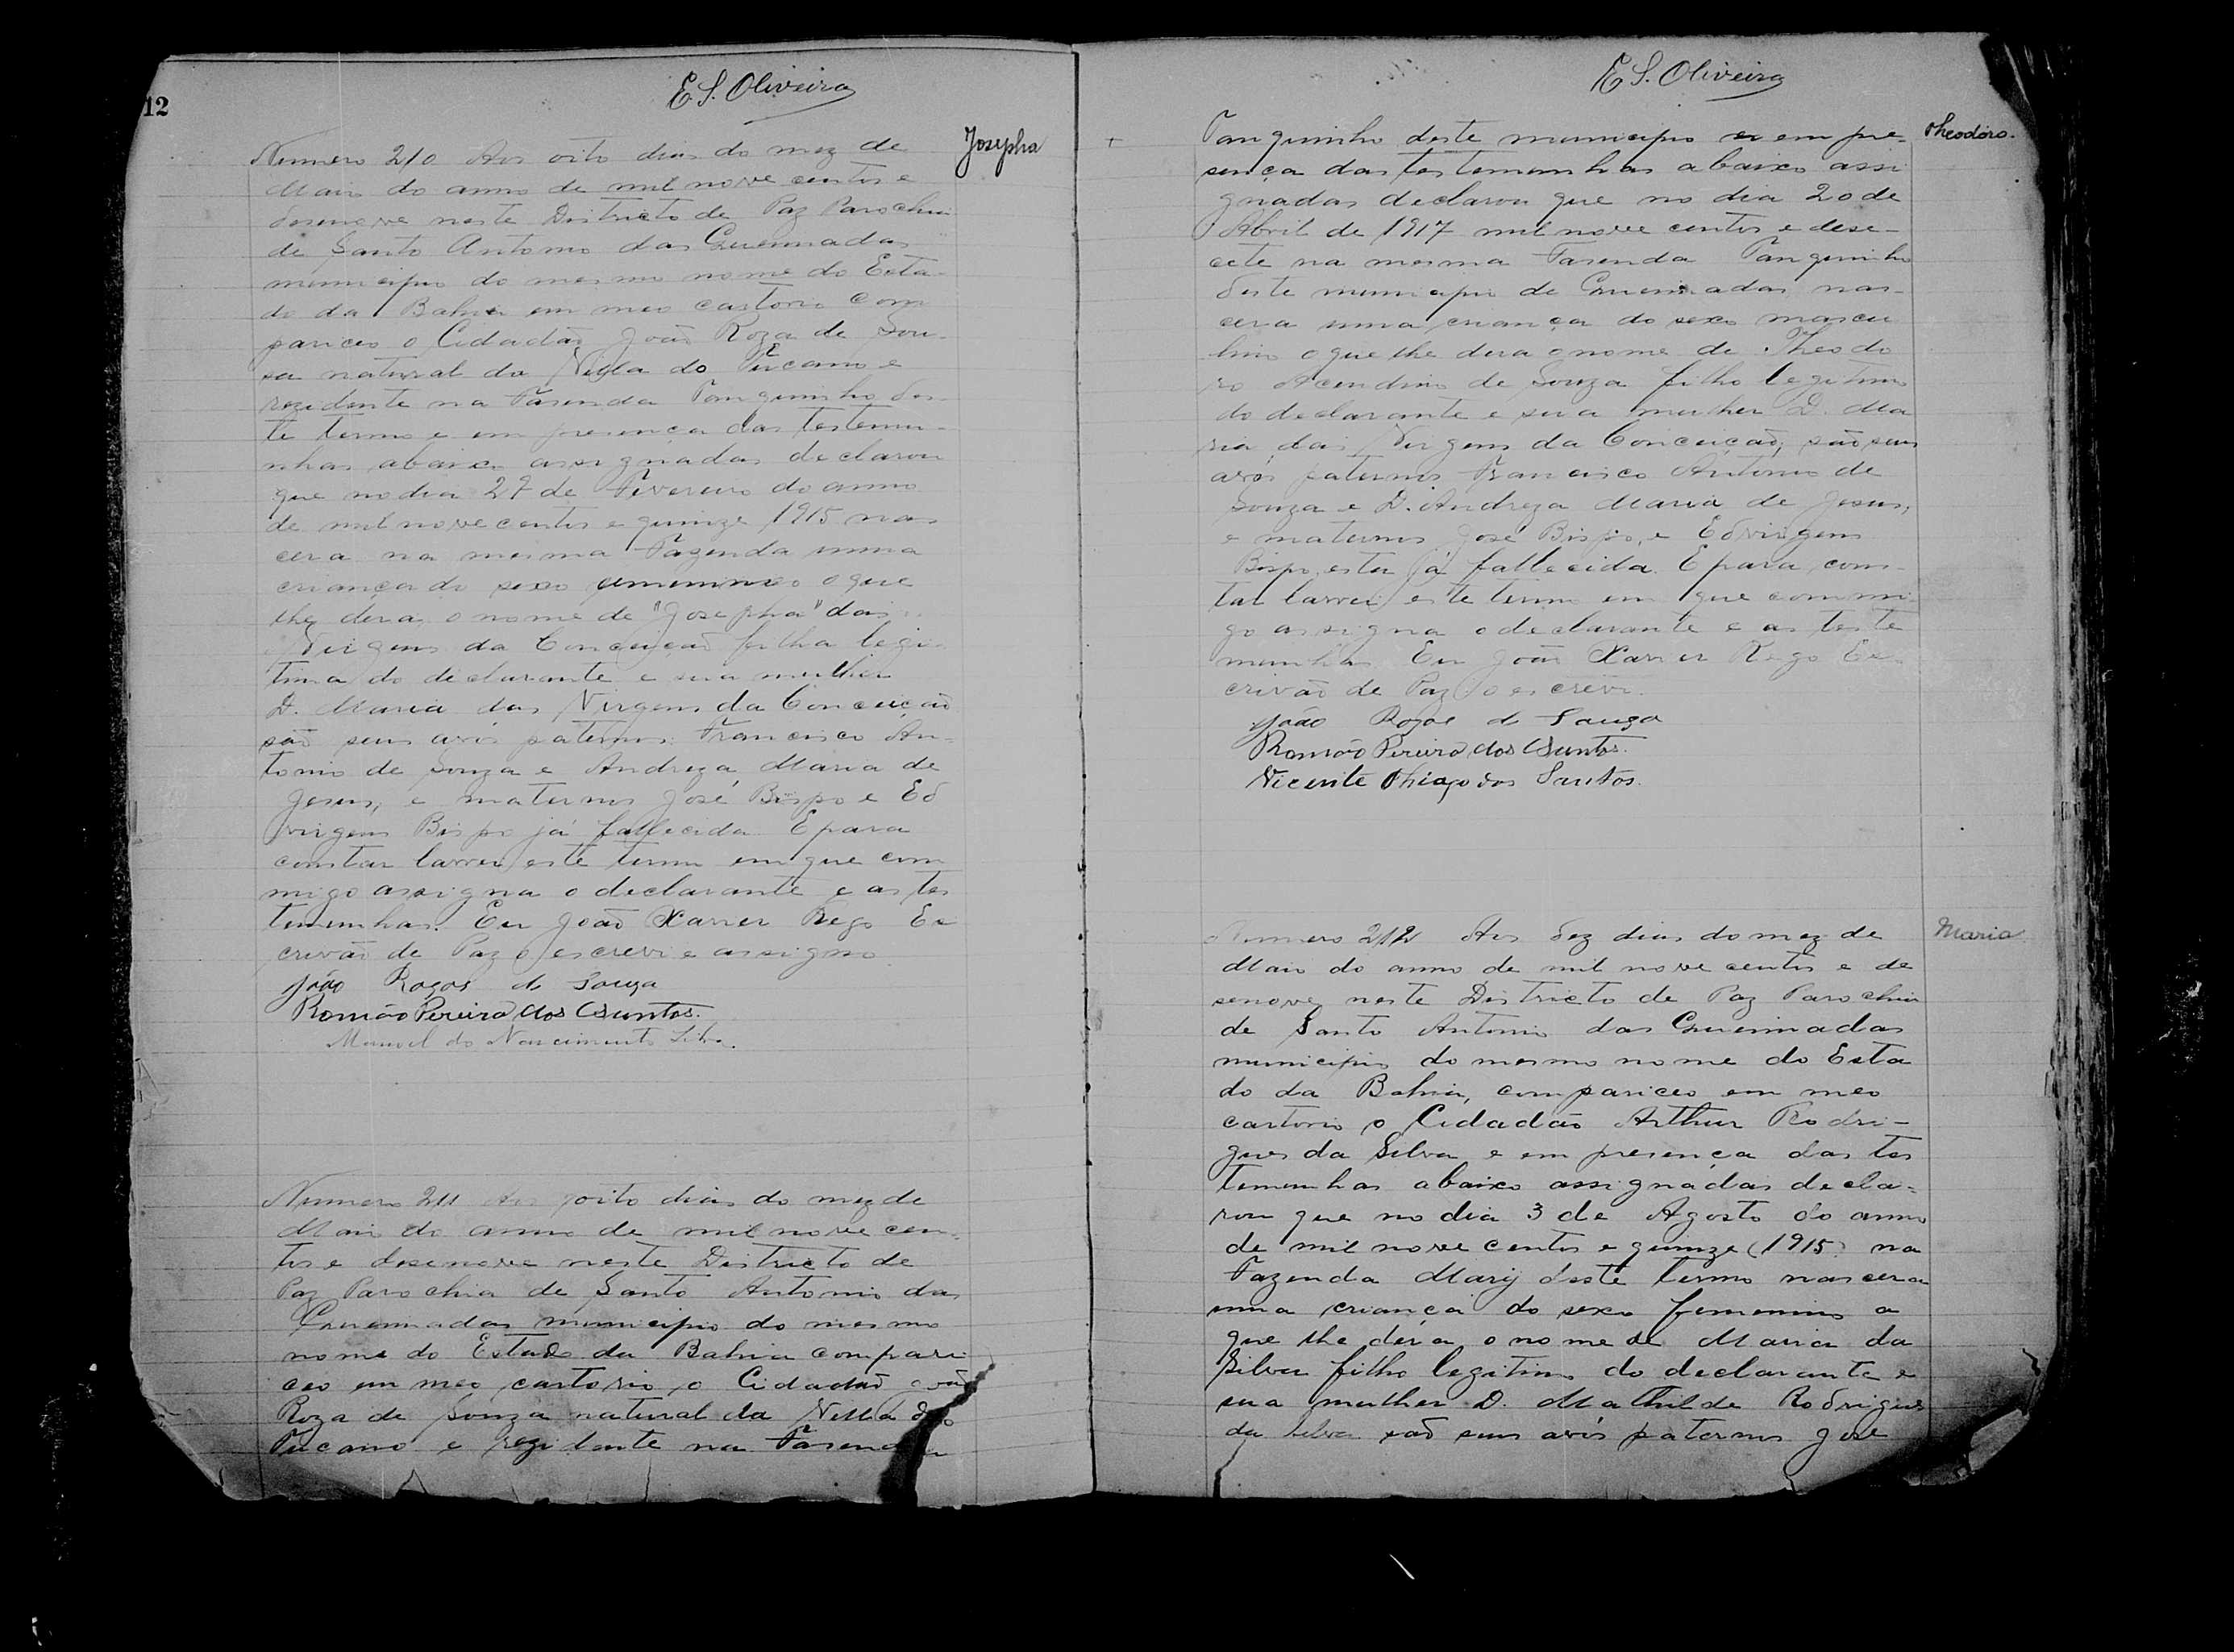 12
E. S. Oliveira
Josepha
Numero 210 Aos oito dias do mez de
Maio do anno de mil nove centos e
desenove neste Districto de Paz Parochia
de Santo Antonio das Queimadas
municipio do mesmo nome do Esta-
do da Bahia em meo cartorio com
pariceo o Cidadão João Roza de Sou-
sa natural da Villa do Tucano e
rezidente na Fasenda Tanquinho des-
te termo e em presença das testemu-
nhas abaixo assignadas declarou
que no dia 27 de Fevereiro do anno
de mil nove centos e quinze 1915 nas
cera na mesma Fazenda uma
criança do sexo femenino o que
lhe dera o nome de "Josepha" das
Virgens da Conceição filha legi-
tima do declarante e sua mulher
D. Maria das Virgens da Conceição
são seus avós paternos Francisco An-
tonio de Souza e Andreza Maria de
Jesus, e maternos José Bispo e Ed
virgens Bispo já fallecida E para
constar lavrei este termo em que com
migo assigna o declarante e as tes
temunhas. Eu João Xavier Rego Es
crivão de Paz o escrevi e assigno
João Rozas de Souza
Romão Pereira dos Santos.
Manoel do Nascimento Silva.
Numero 211 Aos oito dias do mez de
Maio do anno de mil nove cen-
tos e desenove neste Districto de
Paz Parochia de Santo Antonio das
Queimadas municipio do mesmo
nome do Estado da Bahia compari
ceo em meo cartorio o Cidadão João
Roza de Souza natural da Villa do
Tucano e rezidente na Fasenda
E. S. Oliveira
Theodoro.
Tanquinho deste municipio e em pre-
sença das testemunhas abaixo assi
gnadas declarou que no dia 20 de
Abril de 1917 mil nove centos e dese-
cete na mesma Fasenda Tanquinho
deste municipio de Queimadas nas-
cera uma criança do sexo mascu
lino o que lhe dera o nome de Theodo
ro Acendino de Souza filho legitimo
do declarante e sua mulher D. Ma
ria das Virgens da Conceição, são seus
avós paternos Francisco Antonio de
Souza e D. Andreza Maria de Jesus,
e maternos José Bispo, e Edvirgens
Bispo, esta já fallecida. E para cons-
tar lavrei este termo em que commi
go assigna o declarante e as teste
munhas Eu João Xavier Rego Es-
crivão de Paz o escrevi.
João Rozas de Souza
Romão Pereira dos Santos.
Vicente Thiago dos Santos.
Maria
Numero 212 Aos dez dias do mez de
Maio do anno de mil nove centos e de
senove neste Districto de Paz Parochia
de Santo Antonio das Queimadas
municipio do mesmo nome do Esta
do da Bahia, compariceo em meo
cartorio o Cidadão Arthur Rodri-
gues da Silva e em presença das tes
temunhas abaixo assignadas decla-
rou que no dia 3 de Agosto do anno
de mil nove centos e quinze (1915) na
Fazenda Mary deste termo nascera
uma criança do sexo femenino a
que lhe dera o nome de Maria da
Silva filho legitimo do declarante e
sua mulher D. Mathilde Rodrigues
da Silva são seus avós paternos José